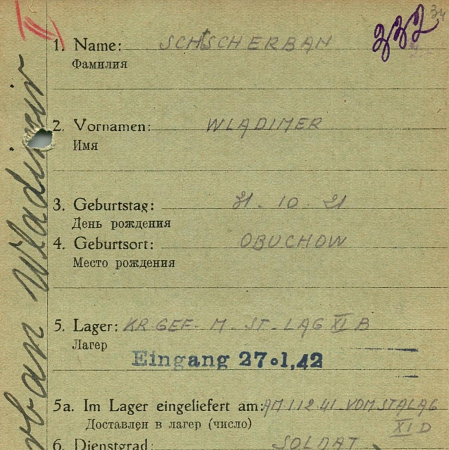 34
332
II
1. Name: SCHTSCHERBAN
Фамилия
2. Vornamen: WLADIMER
Имя
3. Geburtstag: 21. 10. 21
День рождения
4. Geburtsort: OBUCHOW
Место рождения
5. Lager: KR. GEF. M. ST. LAG XI B
Лагер
Eingang 27.1.42
5a. Im Lager eingeliefert am: AM 1 12 41 VOM STALAG
Доставлен в лагер (число) XI D
6. Dienstgrad: SOLDAT
rban Wladimir